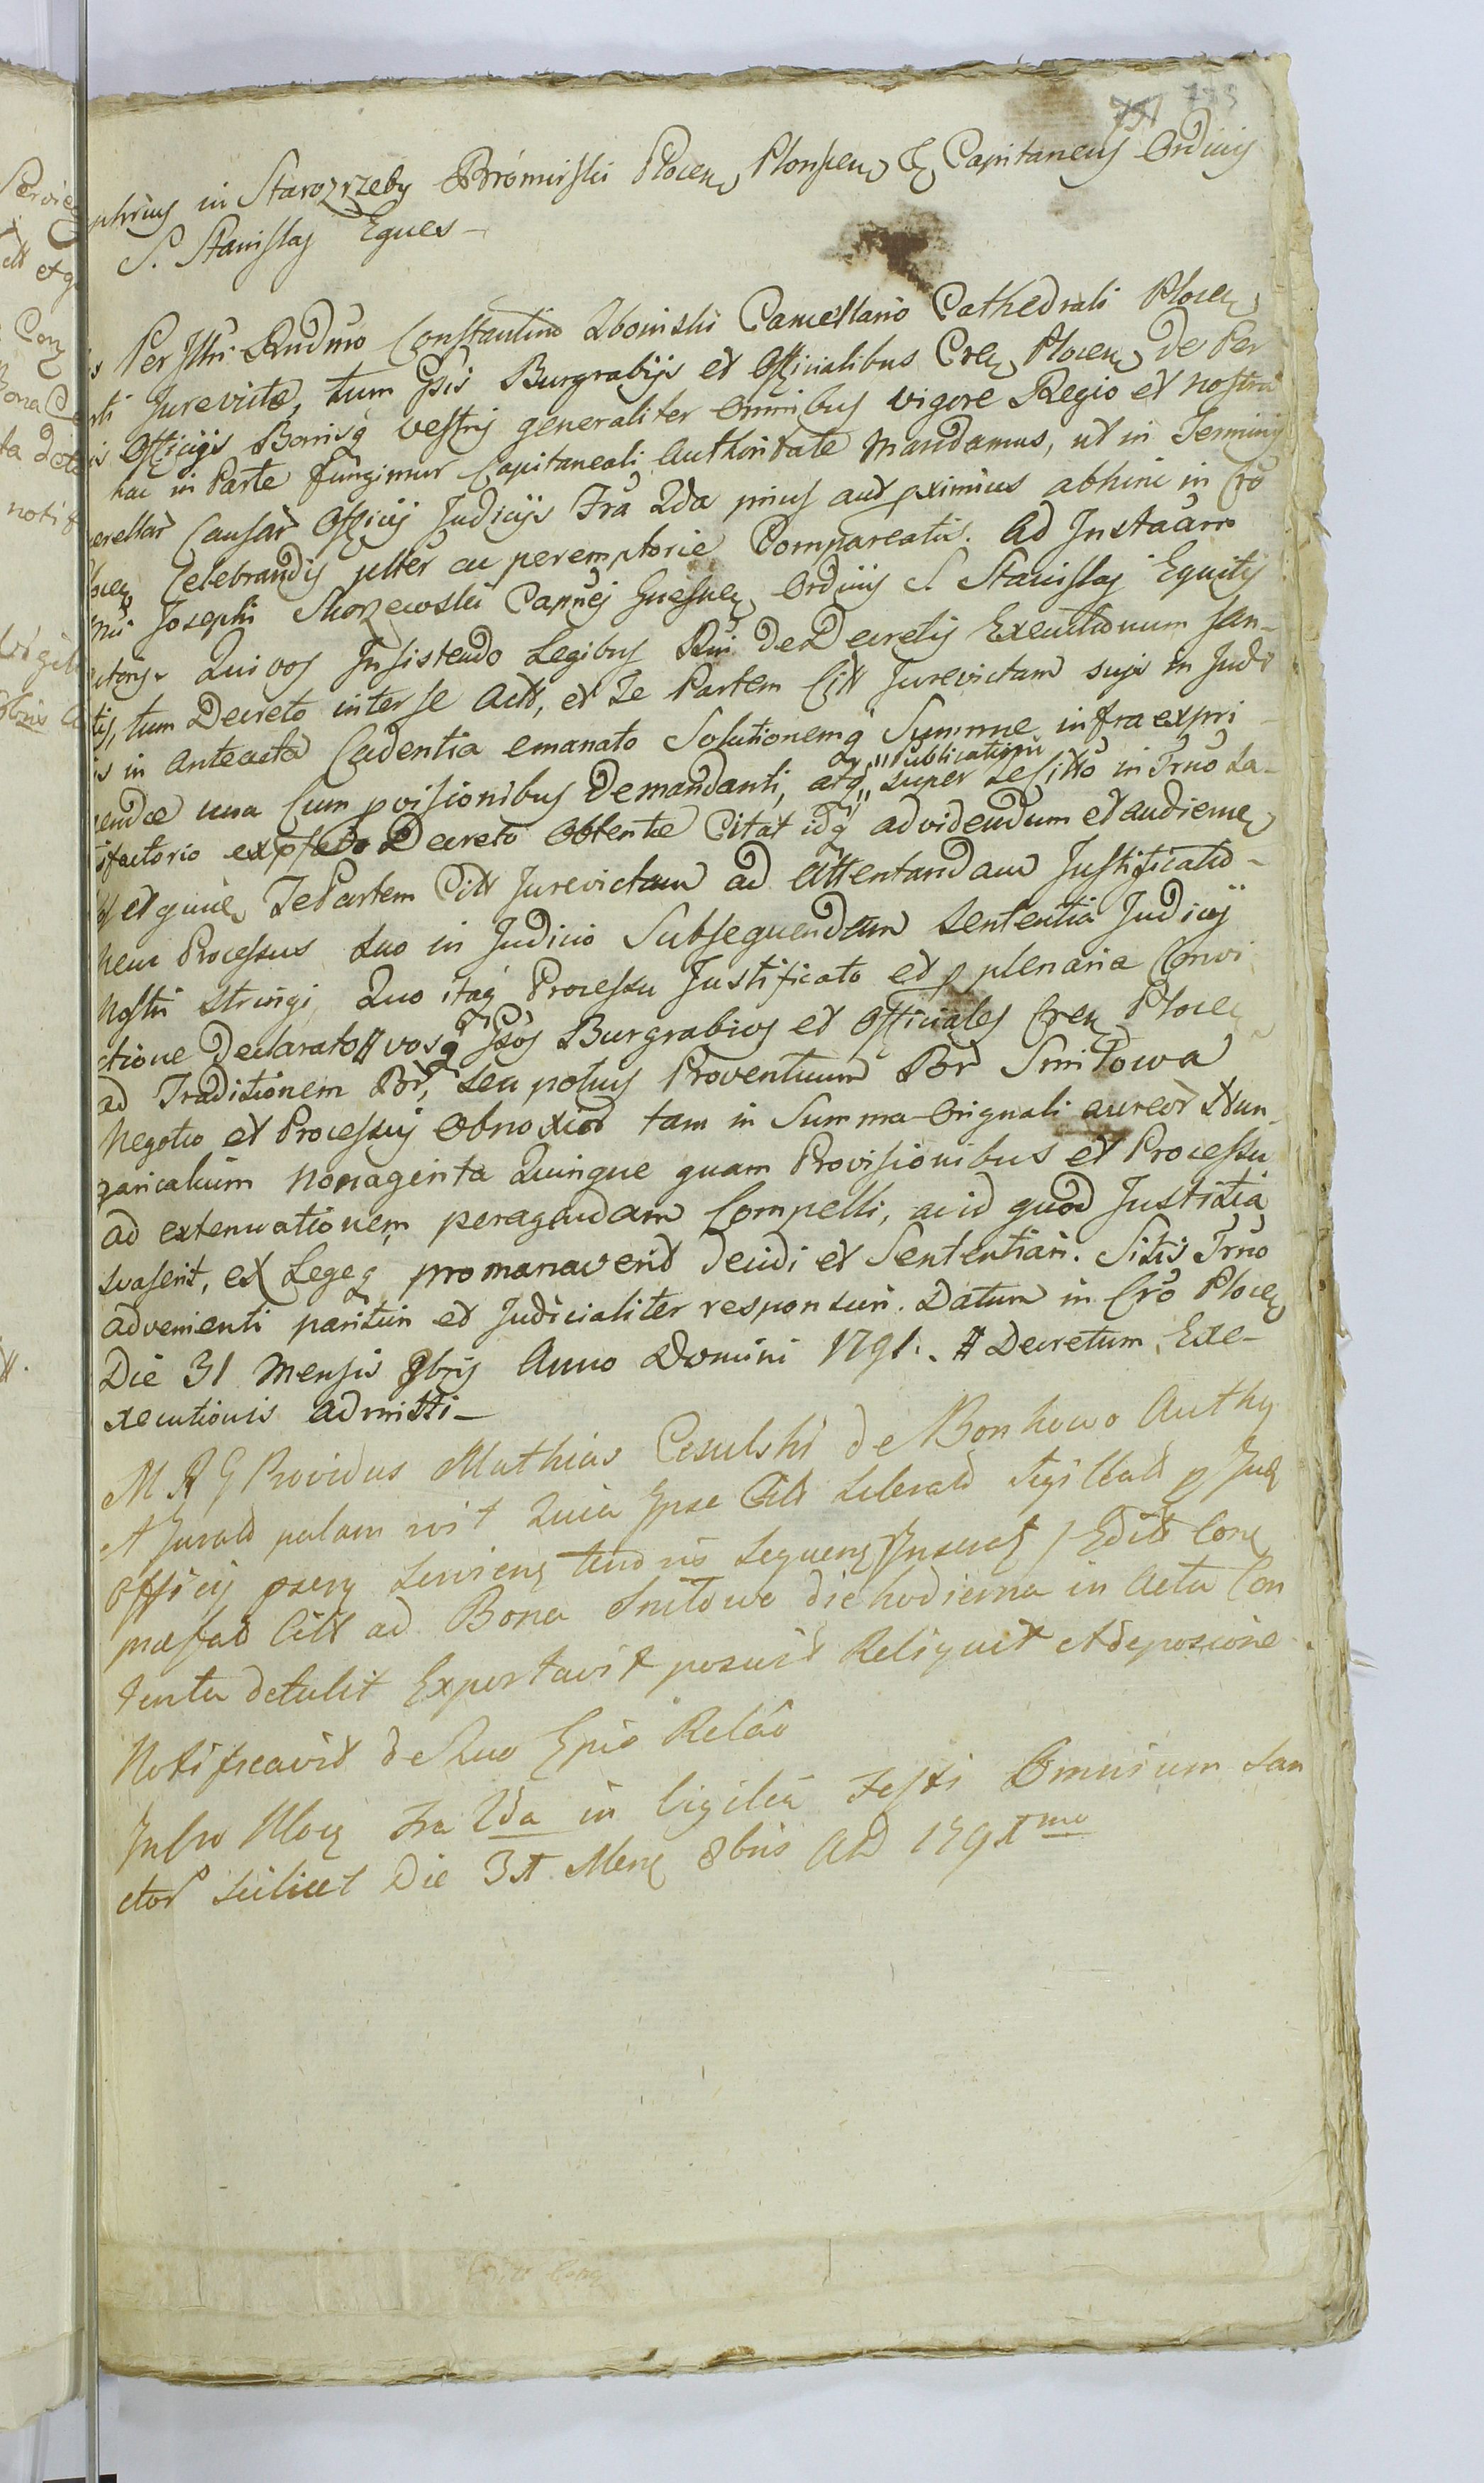 773
phrius in Starozrzeby Bromirski Plocen Plonscen & Capitaneus Ordinis
S. Stanislai Eques –
Per Illri Rndmo Constantino Zboinski Cancellario Cathedrali Plocen
Jurevicto, tum Gsis Burgrabijs et Officialibus Cren Plocen de Per
Officijs Bonisq vestris generaliter omnibus vigore Regio et nostra
hac in Parte fungimur Capitaneali Authoritate Mandamus, ut in Terminis
querellar Causar Officij Judicijs Fra 2da prius aut pximius abhinc in Cro
Plocen Celebrandis plter ac peremptorie Compareatis. Ad Instaam
Josephi Skorzewski Capnei Gnesnen Ordinis S. Stanislai Equitis
Actoris. Qui vos Insistendo Legibus Rni de Decretis Executionum San-
tis, tum Decreto inter se Actt, et Te Partem Citt Jurevictam suis in Judi
is in Anteacta Cadentia emanato Solutionemq Summe infra expri
Publicationi
mendae una Cum pvisionibus Demandanti, atq super se Citto in Trno Sa-
tisfactorio ex psato Decreto Obtentae Citat idq ad videndum et audiemen
et quue Te Partem Citt Jurevictam ad Attentandam Justificatio-
nem Processus suo in Judicio Subsequendam Sententia Judicij
Nostri stringi, Quo itaq Processu Justificato et p plenaria Convi
ctione Declarato # vosq Gsos Burgrabios et Officiales Cren Plocen
ad Traditionem Bor, seu potius Proventuum Bor Smitowa
Negotio et Processui Obnoxior tam in Summa Originali aureor Hun
garicalium Nonaginta Quinque quam Provisionibus et Processu
ad extenuationem peragendam Compelli, ac id quod Justitia
svaserit, ex Legeq promanaverit decidi et Sententiari. Sitis Trno
advenienti parituri et Judicialiter responsuri. Datum in Cro Plocen
Die 31 Mensis 8bris Anno Domini 1791. # Decretum Exe-
xecutionis admitti –
M R G Providus Mathias Cesulski de Bonkowo Authy
et Jurat palam rcvit Quia Ipse Citt Literale Sigillatt p Jud
Officij psens Serviens tenoris Sequens (Inserat) Editt Conq
praefatt Citt ad Bona Smitowo die hodierna in Acta Con
tenta detulit Exportavit posuit Reliquit et deposicione
Notificavit de Quo Gpio Relao
In Cro Ploc Fra 2da in Vigilia Festi Omnium San
ctor scilicet Die 31 Mens 8bris AD 1791mo